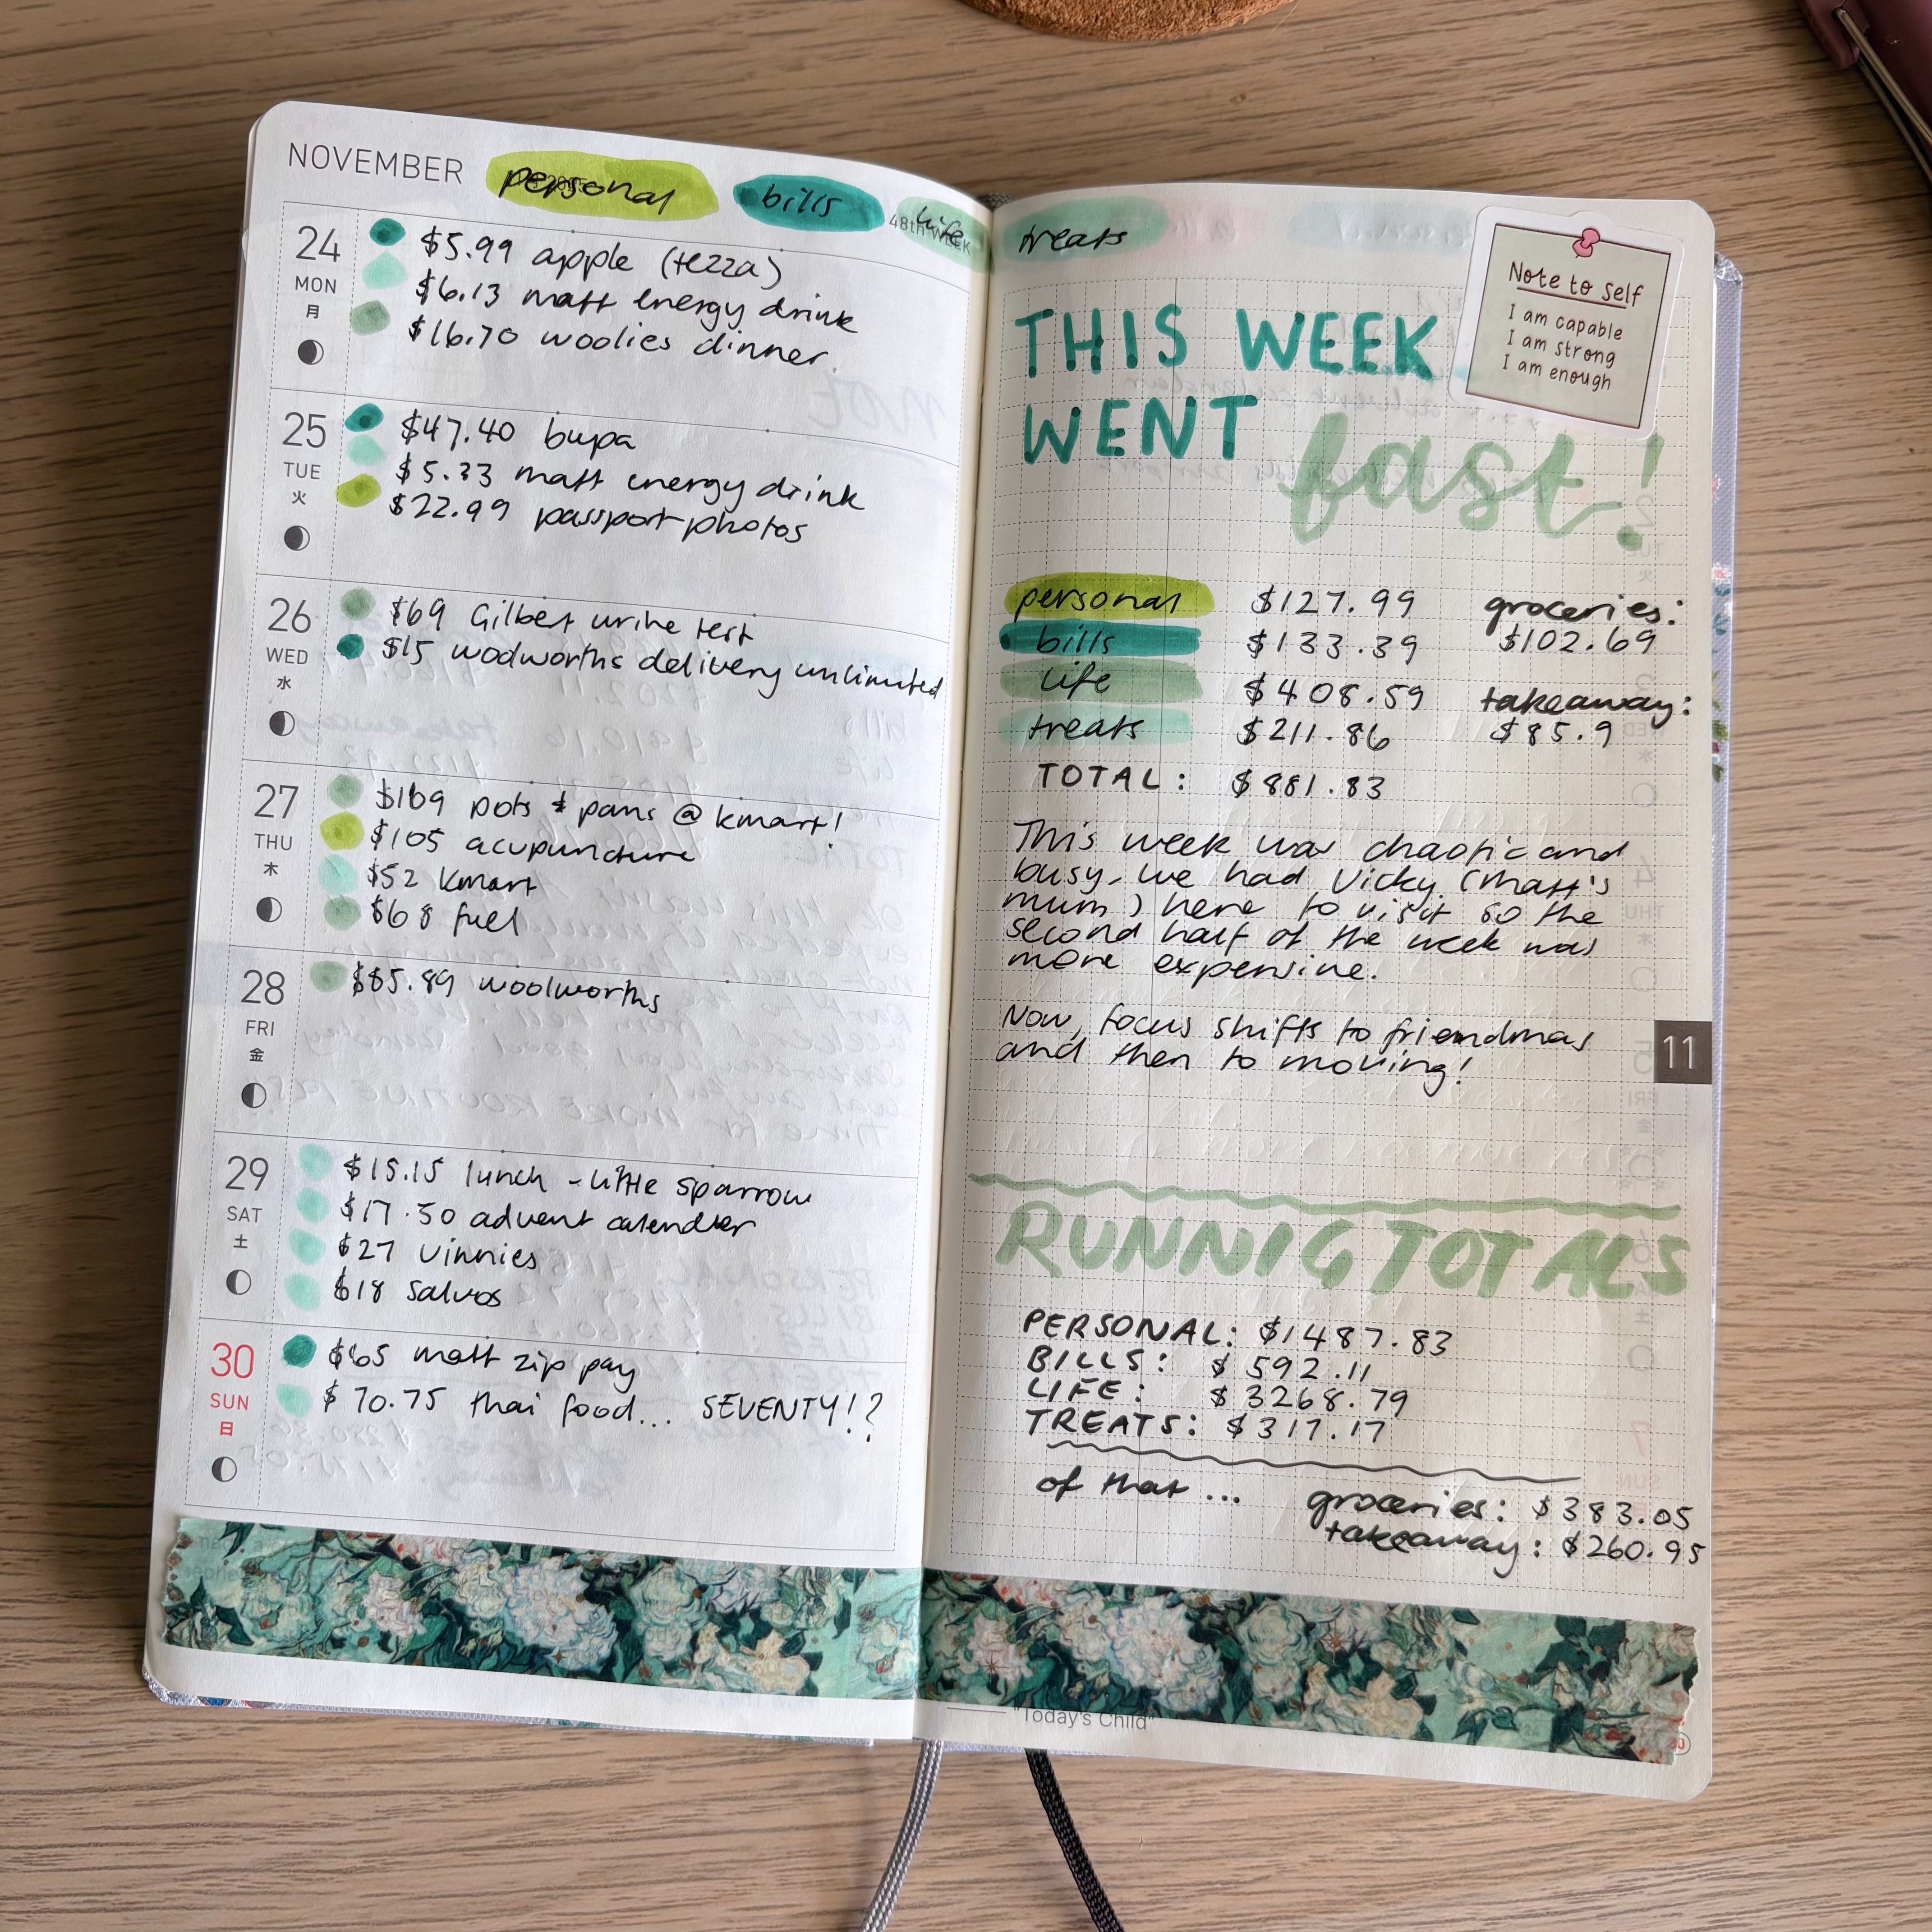 NOVEMBER
personal
bills
life
48th WEEK
24
MON
月
$5.99 apple (tezza)
$6.13 matt energy drink
$16.70 woolies dinner
25
TUE
火
$47.40 bupa
$5.33 matt energy drink
$22.99 passport photos
26
WED
水
$69 Gilbert urine test
$15 wodworths delivery unlimited
27
THU
木
$169 pots & pans @ kmart!
$105 acupuncture
$52 kmart
$68 fuel
28
FRI
金
$85.89 woolworths
29
SAT
土
$15.15 lunch - little sparrow
$17.50 advent calendter
$27 Vinnies
$18 salvos
30
SUN
日
$65 matt zip pay
$70.75 thai food... SEVENTY!?
treats
Note to self
I am capable
I am strong
I am enough
THIS WEEK
WENT fast!
personal $127.99
bills $133.39
life $408.59
treats $211.86
TOTAL: $881.83
groceries:
$102.69
takeaway:
$85.9
This week was chaotic and
busy, we had Vicky (Matt's
mum) here to visit so the
second half of the week was
more expensive.
Now, focus shifts to friendmas
and then to moving!
11
RUNNIG TOTALS
PERSONAL: $1487.83
BILLS: $592.11
LIFE: $3268.79
TREATS: $317.17
of that ...
groceries: $383.05
takeaway: $260.95
"Today's Child"